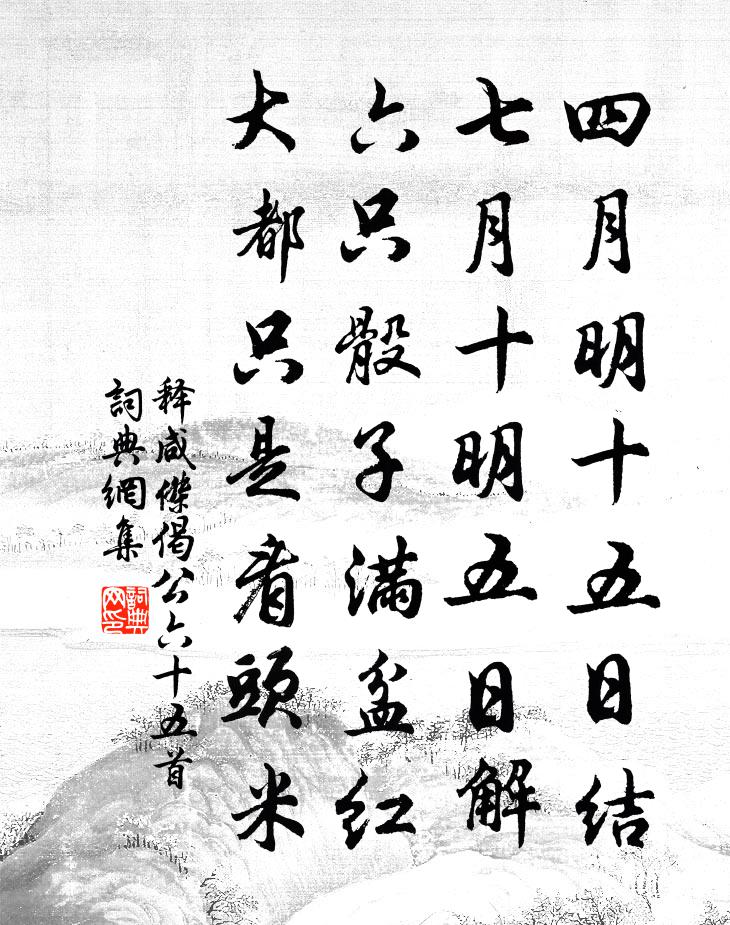 四月明十五日結
七月十明五日解
六只骰子滿盆紅
大都只是者頭米
释咸傑偈公六十五首
詞典網集
詞典网印